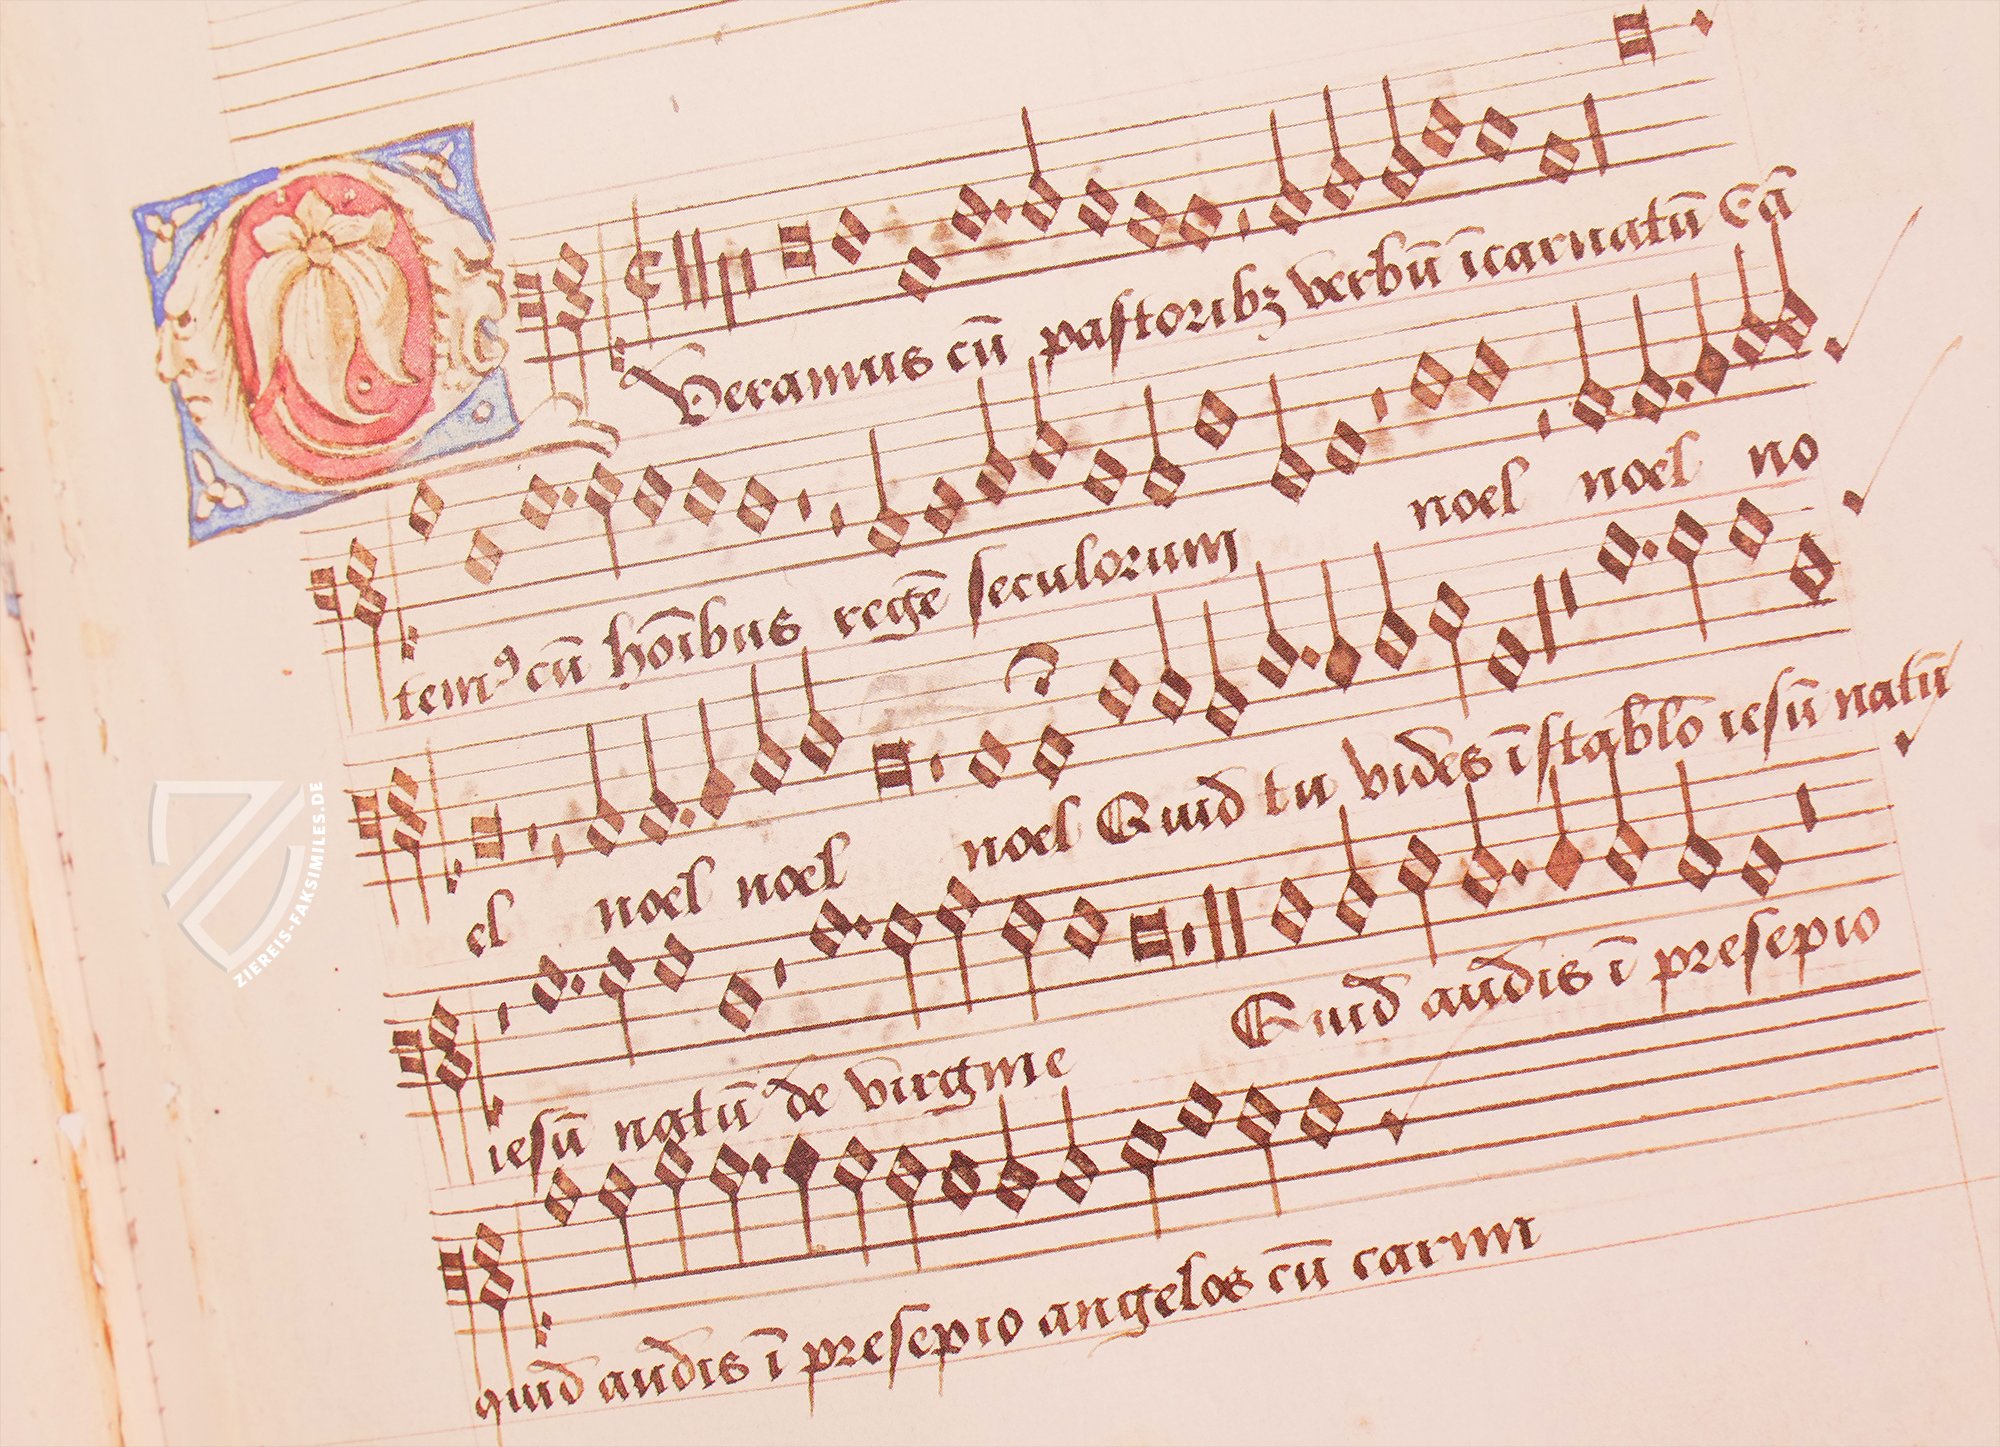 Overamus cū pastoribꝫ verbū īcarnatū Cā
temꝰ cū hoībus regē seculorum noel noel no
el noel noel noel Quid tu vides ī stablo iesū natū
iesū natū de virgine Quid audis ī presepio
quid audis ī presepio angelos cū carmi
ZIEREIS-FAKSIMILES.DE